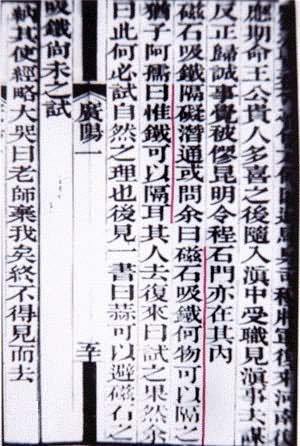 應期命王公貴人多喜之後隨入滇中受職見滇事大
反正歸誠事覺被僇昆明令程石門亦在其內
磁石吸鐵隔礙潛通或問余曰磁石吸鐵何物可以隔之
猶子阿孺曰惟鐵可以隔耳其人去復來曰試之果然余
曰此何必試自然之理也後見一書曰蒜可以避磁石之
吸鐵尚未之試
廣陽一
五十
其使經略大哭曰老師棄我矣終不得見而去